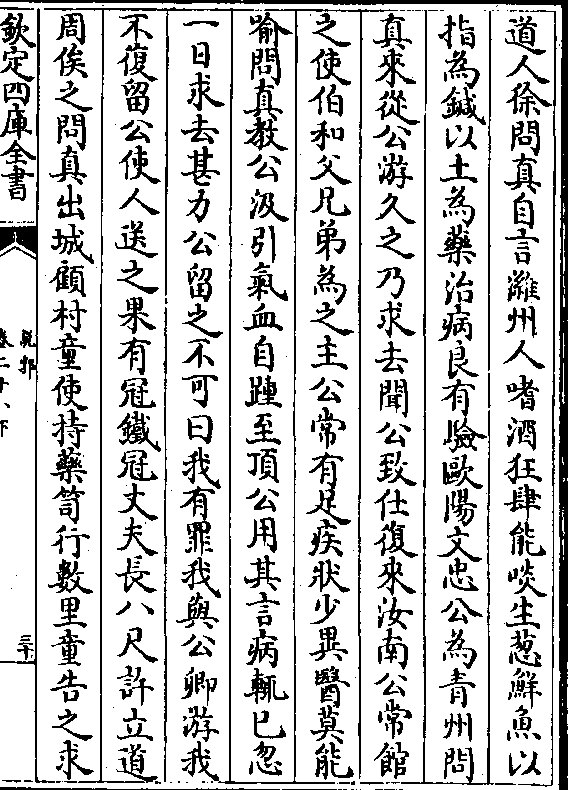 道人徐問真自言濰州人嗜酒狂肆能啖生葱鮮魚以
指為鍼以土為藥治病良有驗歐陽文忠公為青州問
真來從公游久之乃求去聞公致仕復來汝南公常館
之使伯和父兄弟為之主公常有足疾狀少異醫莫能
喻問真教公汲引氣血自踵至頂公用其言病輒已忽
一日求去甚力公留之不可曰我有罪我與公卿游我
不復留公使人送之果有冠鐵冠丈夫長八尺許立道
周俟之問真出城顧村童使持藥笥行數里童告之求
欽定四庫全書
說郛
卷二十八下
三十